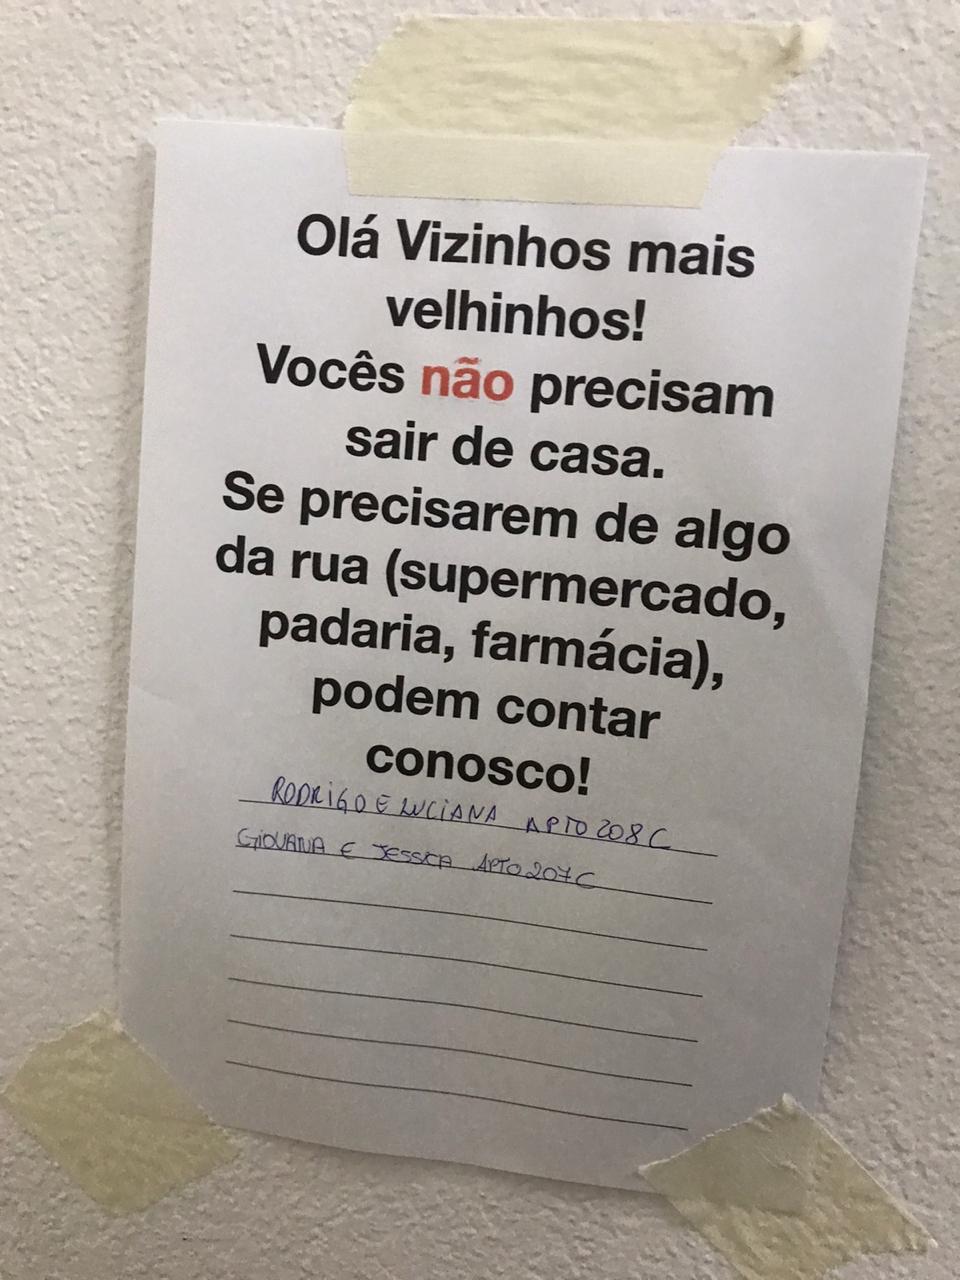 Olá Vizinhos mais
velhinhos!
Vocês não precisam
sair de casa.
Se precisarem de algo
da rua (supermercado,
padaria, farmácia),
podem contar
conosco!
RODRIGO E LUCIANA APTO 208 C
GIOVANA E JESSICA APTO 207 C